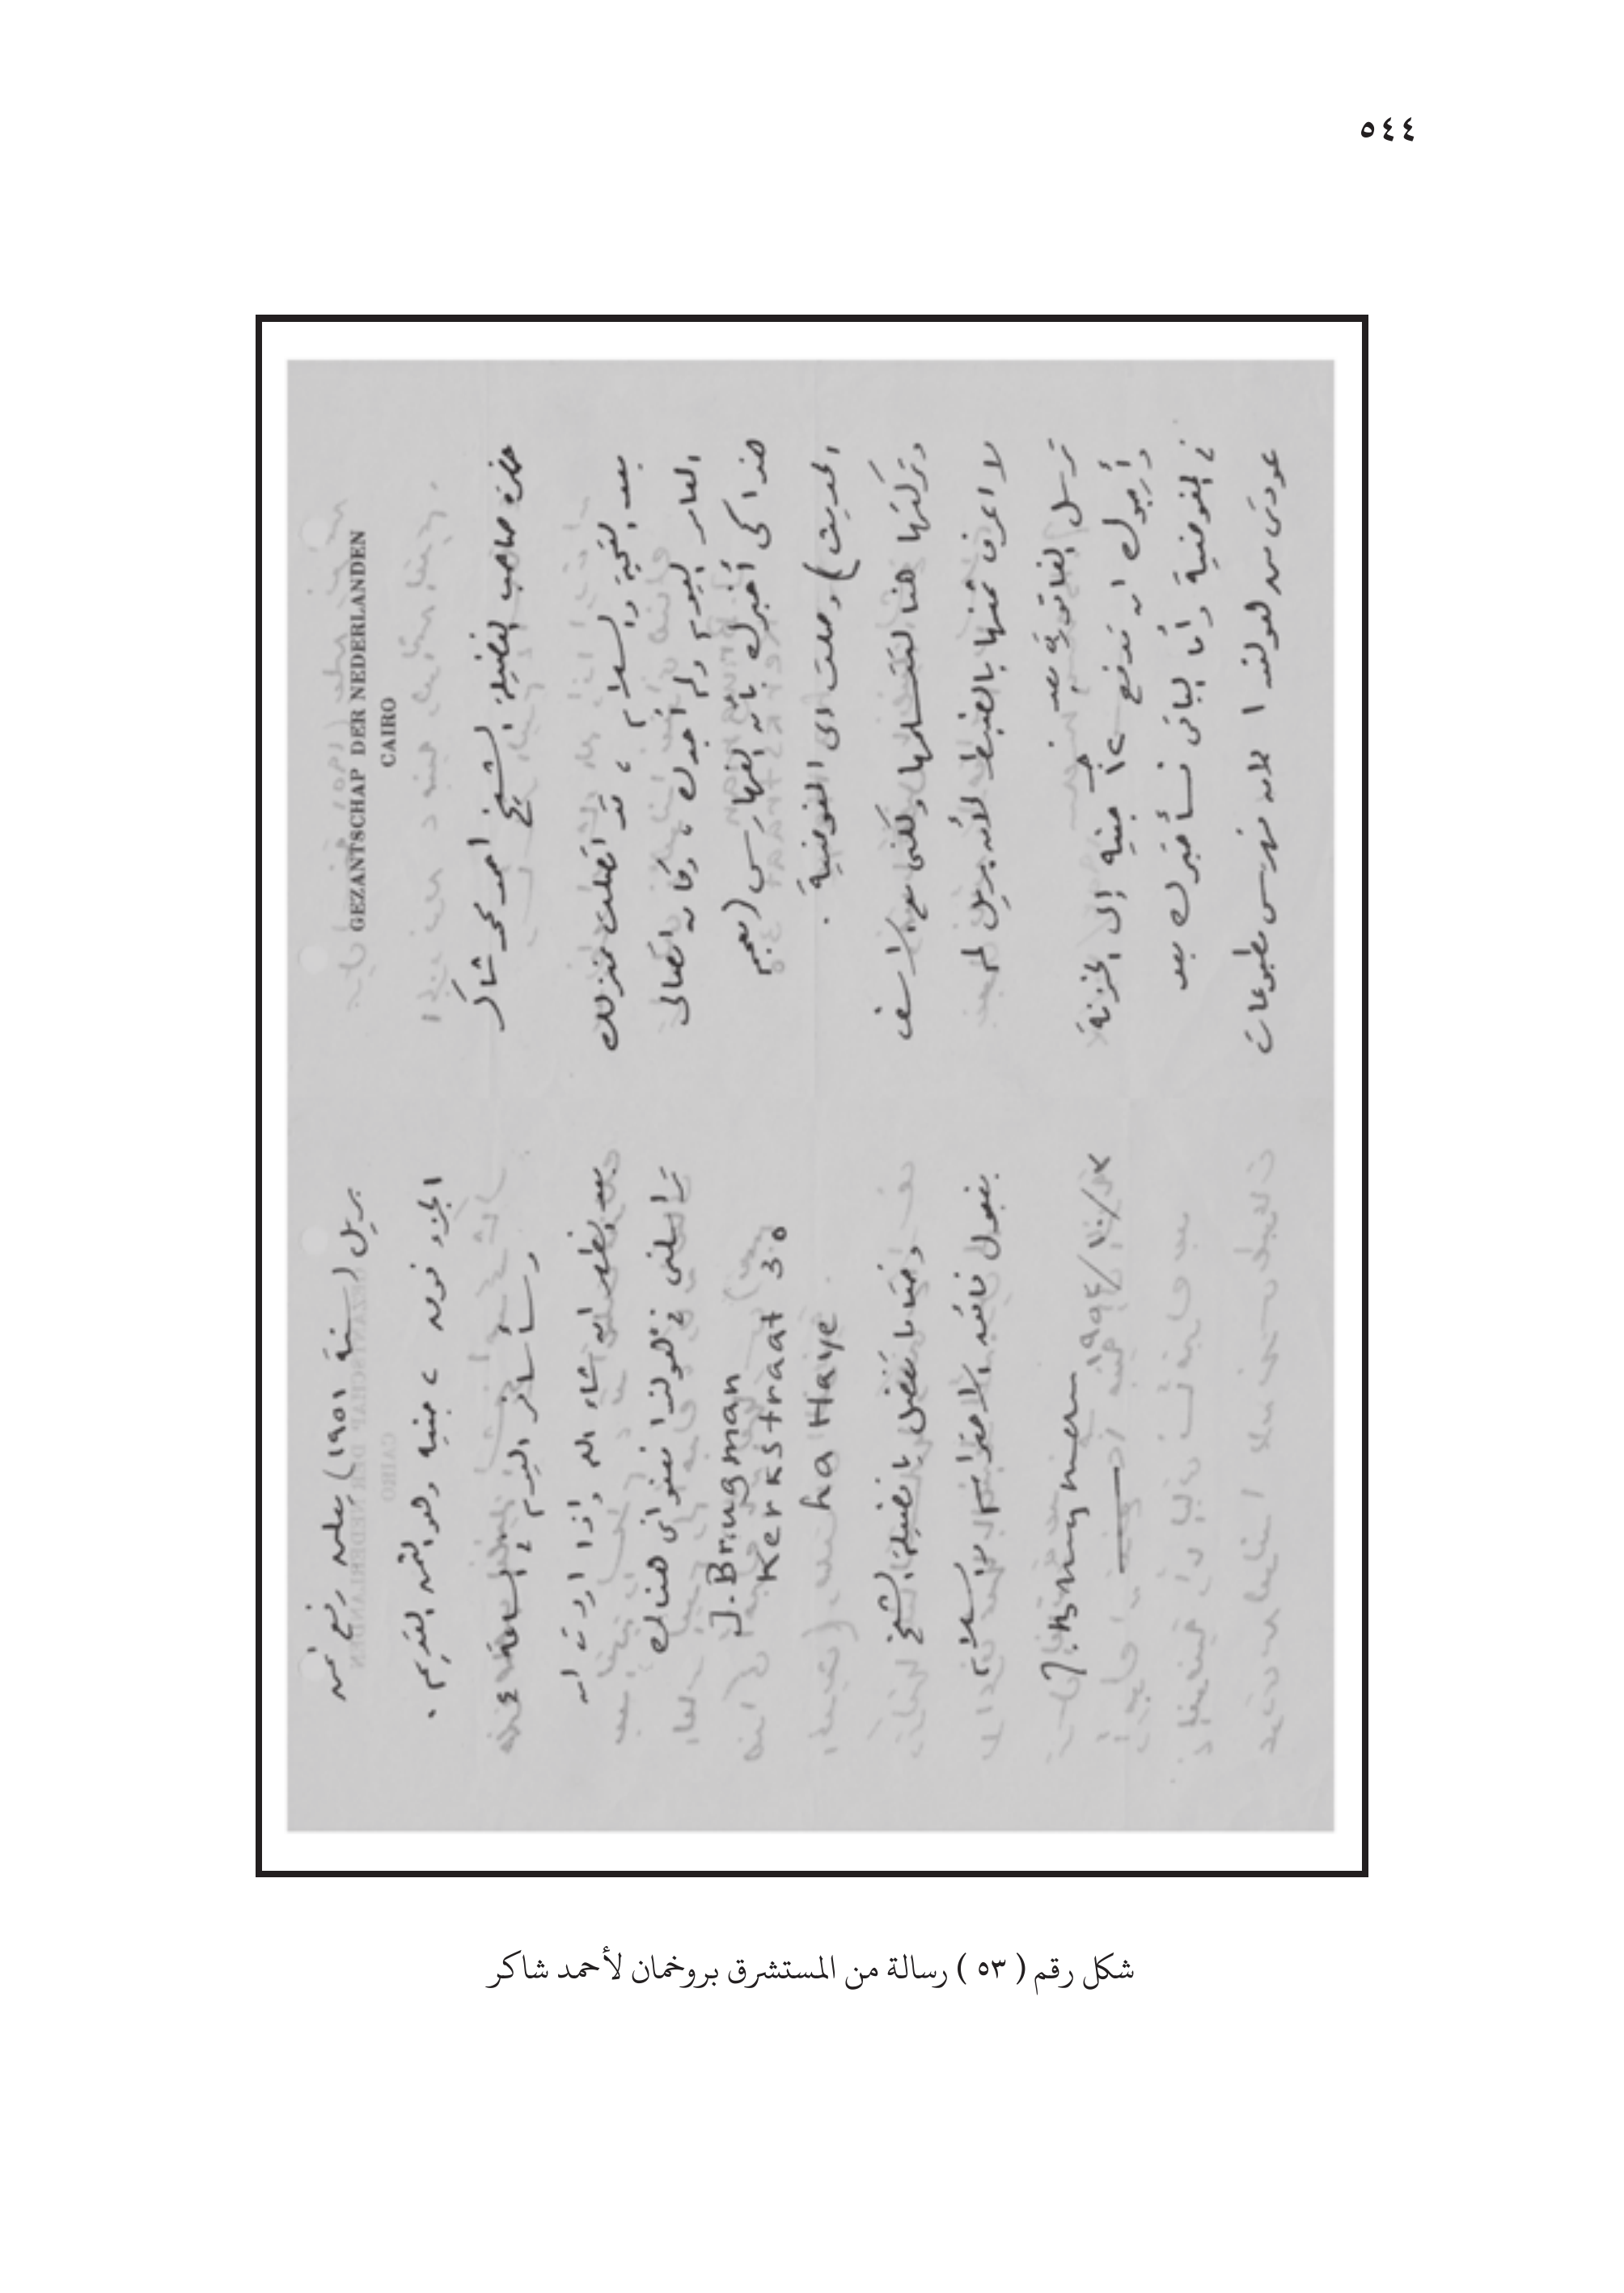 ٥٤٤
GEZANTSCHAP DER NEDERLANDEN
CAIRO
حضرة صاحب الفضيلة الشيخ احمد محمد شاكر
بعد التحية والسلام ، قد اتصلت بمنزلك
العامر اليوم ولم أجدك ، وكان اتصالى
هذا كى أخبرك بأن الفهارس (معجم
الحديث) وصلت الى المفوضية .
وتركتها هنا لتتسلمها ولكنى مع الاسف
لا اعرف ثمنها بالضبط لأن بريل لم
ترسل الفاتورة بعد
وأرجوك ان تدفع جنيه إلى الخزنة
فى المفوضية وأما الباقى فسأخبرك بعد
عودتى من هولندا لان فهرس مطبوعات
بريل (سنة ١٩٥١) يعلن رفع ثمن
الجزء فوق ٢ جنيه وهو الثمن القديم .
وسأسافر اليوم فى الساعة ٤
بعد الظهر ان شاء الله واذا اردت ان
تراسلنى فى هولندا فعنوانى هناك
J. Brugman
Kerkstraat 30
La Haye
وختاما تفضل يا فضيلة الشيخ
بقبول فائق الاحترام والسلام
J. Brugman
شكل رقم ( ٥٣ ) رسالة من المستشرق بروخمان لأحمد شاكر